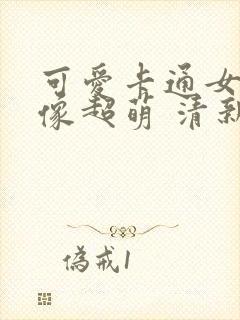 可愛卡通女
像超萌 清新
偽戒1